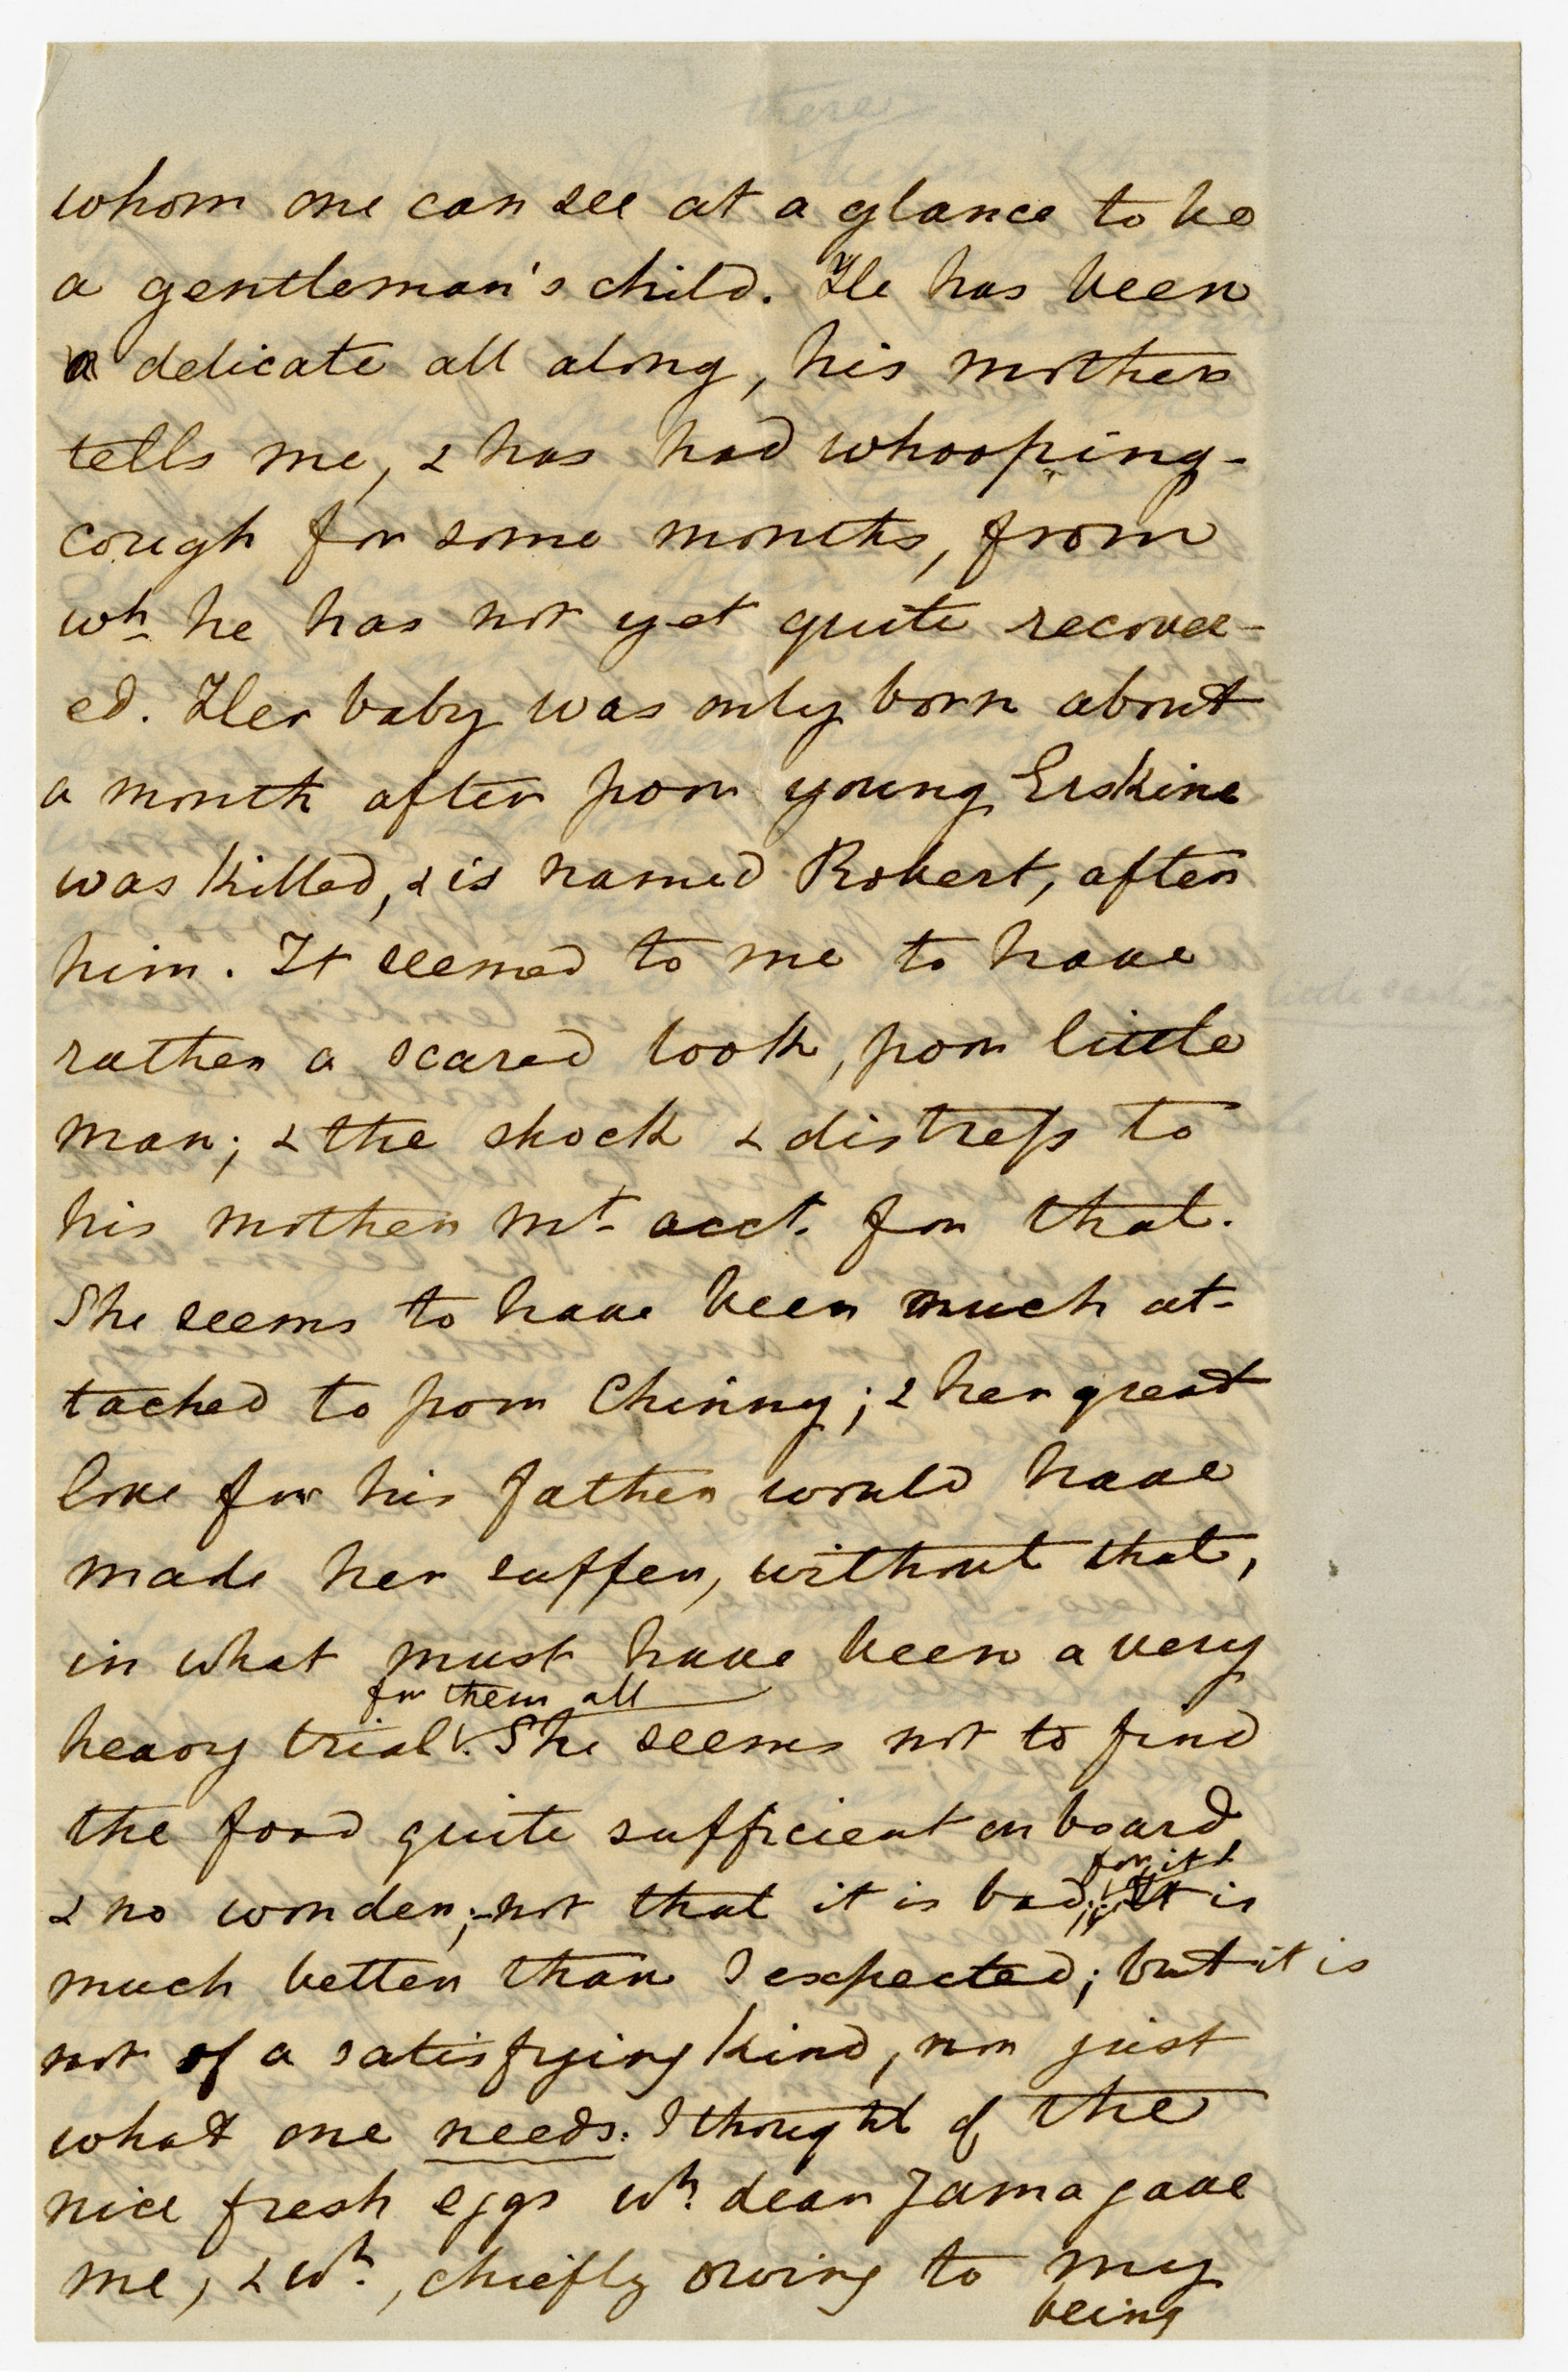 whom one can see at a glance to be
a gentleman's child. He has been
delicate all along, his mother
tells me, & has had whooping-
cough for some months, from
wh. he has not yet quite recover-
ed. Her baby was only born about
a month after poor young Erskine
was killed, & is named Robert, after
him. It seemed to me to have
rather a scared look, poor little
man; & the shock & distress to
his mother mt. acct. for that.
She seems to have been much at-
tached to poor Chinny; & her great
love for his father would have
made her suffer, without that,
in what must have been a very
for them all
heavy trial. She seems not to find
the food quite sufficient on board
for it
& no wonder;- not that it is bad; is
much better than I expected; but it is
not of a satisfying kind, nor just
what one needs. I thought of the
nice fresh eggs wh. dear Jama gave
me, & wh., chiefly owing to my
being